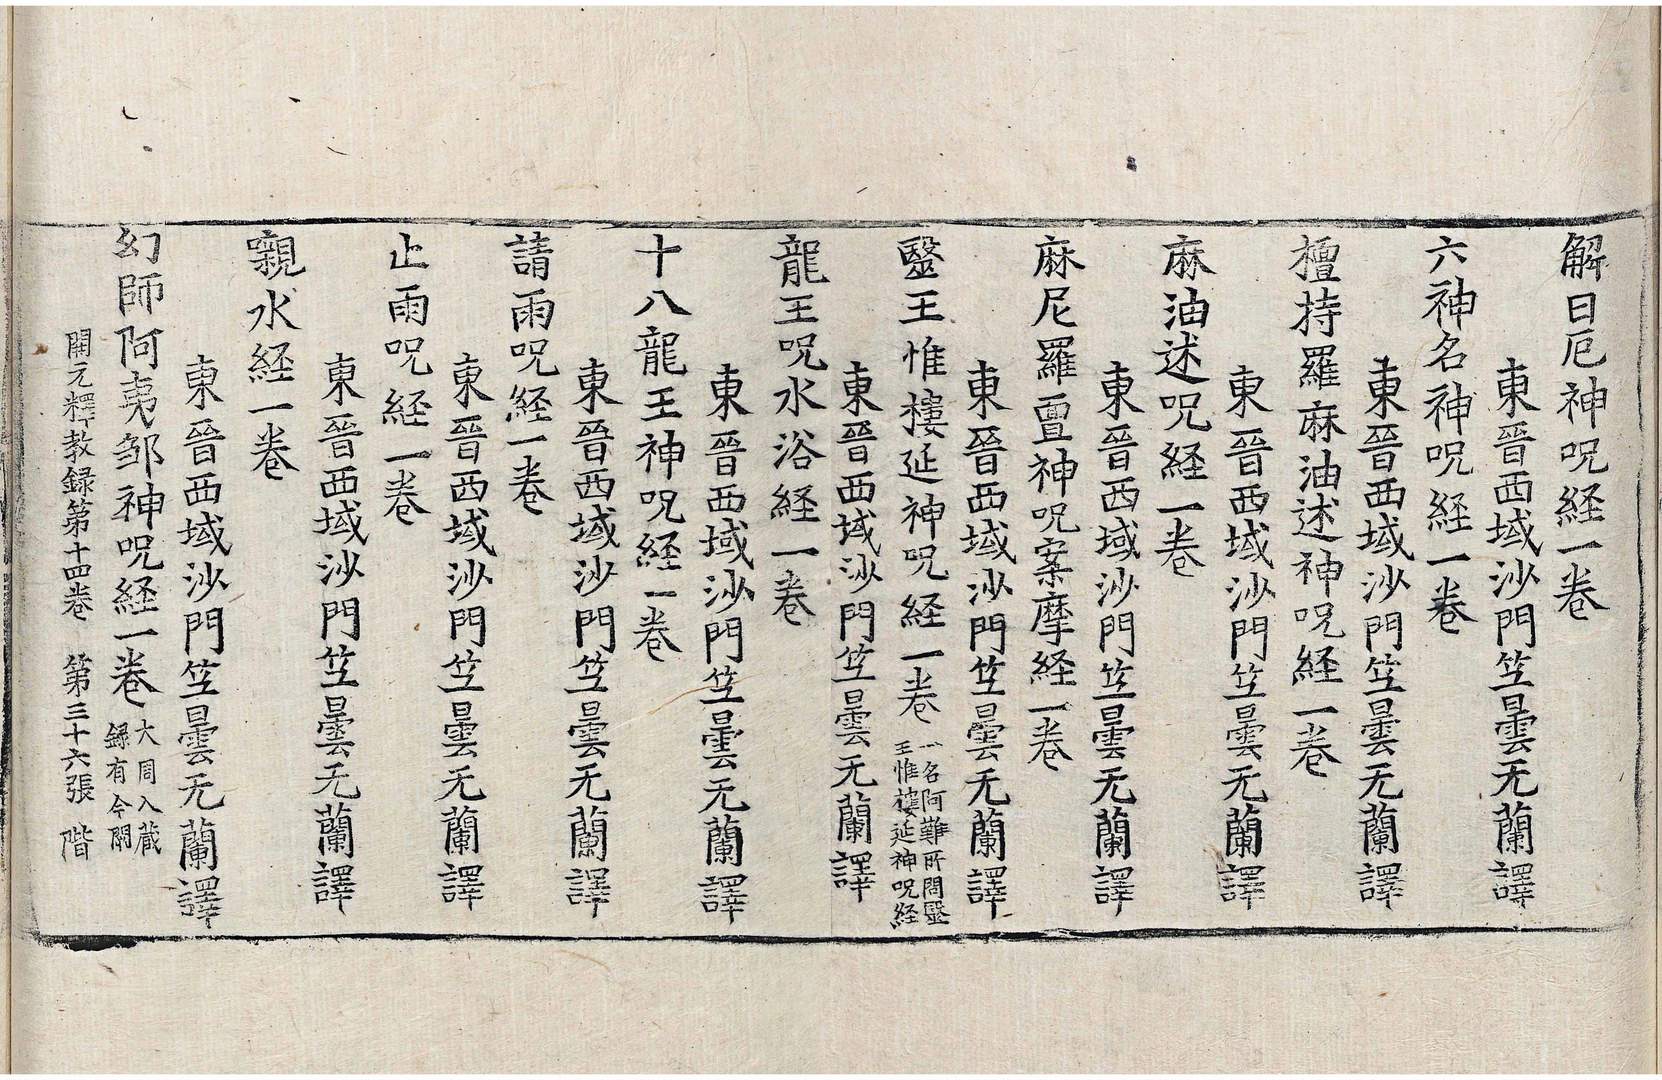 解日厄神呪経一巻
東晉西域沙門笁曇无蘭譯
六神名神呪経一巻
東晉西域沙門笁曇无蘭譯
檀持羅麻油述神呪経一巻
東晉西域沙門笁曇无蘭譯
麻油述呪経一巻
東晉西域沙門笁曇无蘭譯
麻尼羅亶神呪案摩経一巻
東晉西域沙門笁曇无蘭譯
毉王惟樓延神呪経一巻 一名阿難所問毉
王惟樓延神呪経
東晉西域沙門笁曇无蘭譯
龍王呪水浴経一巻
東晉西域沙門笁曇无蘭譯
十八龍王神呪経一巻
東晉西域沙門笁曇无蘭譯
請雨呪経一巻
東晉西域沙門笁曇无蘭譯
止雨呪経一巻
東晉西域沙門笁曇无蘭譯
嚫水経一巻
東晉西域沙門笁曇无蘭譯
幻師阿夷邹神呪経一巻 大周入蔵
録有今闕
開元釋教録第十四巻 第三十六張 階